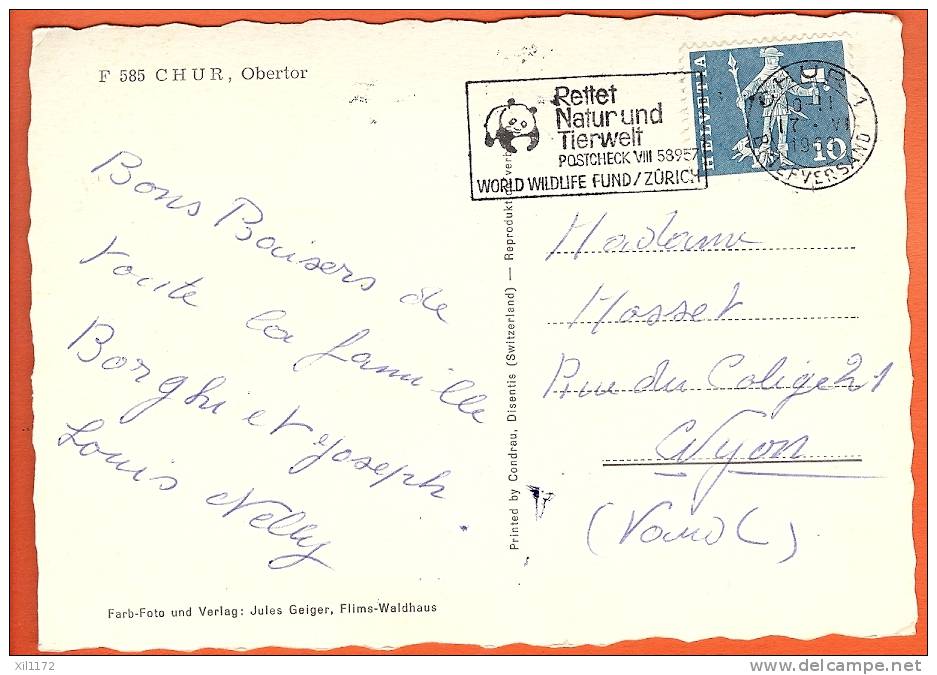 F 585 CHUR, Obertor
Rettet
Natur und
Tierwelt
POSTCHECK VIII 58957
WORLD WILDLIFE FUND/ZÜRICH
HELVETIA
10
BRIEFVERSAND
Bons Baisers de
toute la famille
Borghi et Joseph.
Louis Nelly
Printed by Condrau, Disentis (Switzerland) — Reproduktion verb
Madame
Mosset
Rue du Colège 21
Nyon
(Vaud)
Farb-Foto und Verlag: Jules Geiger, Flims-Waldhaus
xil1172
www.delcampe.net